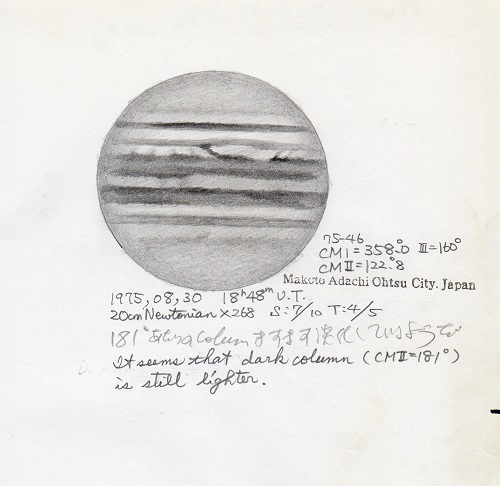 75-46
CM I = 358.°0 III = 160°
CM II = 122.°8
Makoto Adachi Ohtsu City, Japan
1975, 08, 30 18h48m U.T.
20cm Newtonian ×268 S:7/10 T:4/5
181° Column ますます淡化しているようで
It seems that dark column (CMII=181°)
is still lighter.